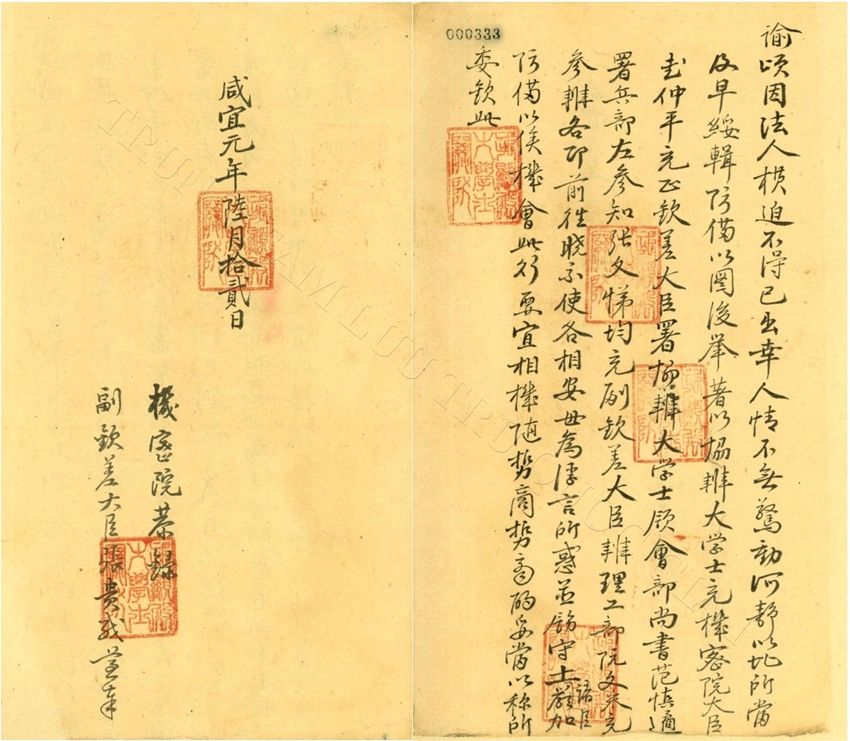 000333
諭頃因法人橫迫不得已出幸人情不無驚動河靜以北所當
及早綏輯防備以圖後举著以協辦大学士充機密院大臣
武仲平充正欽差大臣署協辦大学士領會部尚書范慎遹
署兵部左參知張文悌均充副欽差大臣辦理工部阮文來充
參辦各即前往曉示使各相安毋為浮言所惑並飭守土諸臣嚴加
防備以俟機會此行要宜相機随势商酌妥當以称所
委欽此
咸宜元年陸月拾貳日
機密院恭錄
副欽差大臣張貴
大學士
關防